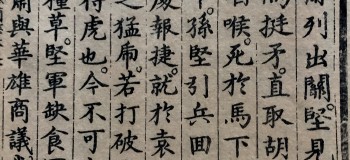 列出關堅見
挺矛直取胡
喉。死於馬下
孫堅引兵回
處報捷。就於袁
之猛乕。若打破
得虎也。今不可
草。堅軍缺食
肅與華雄商議